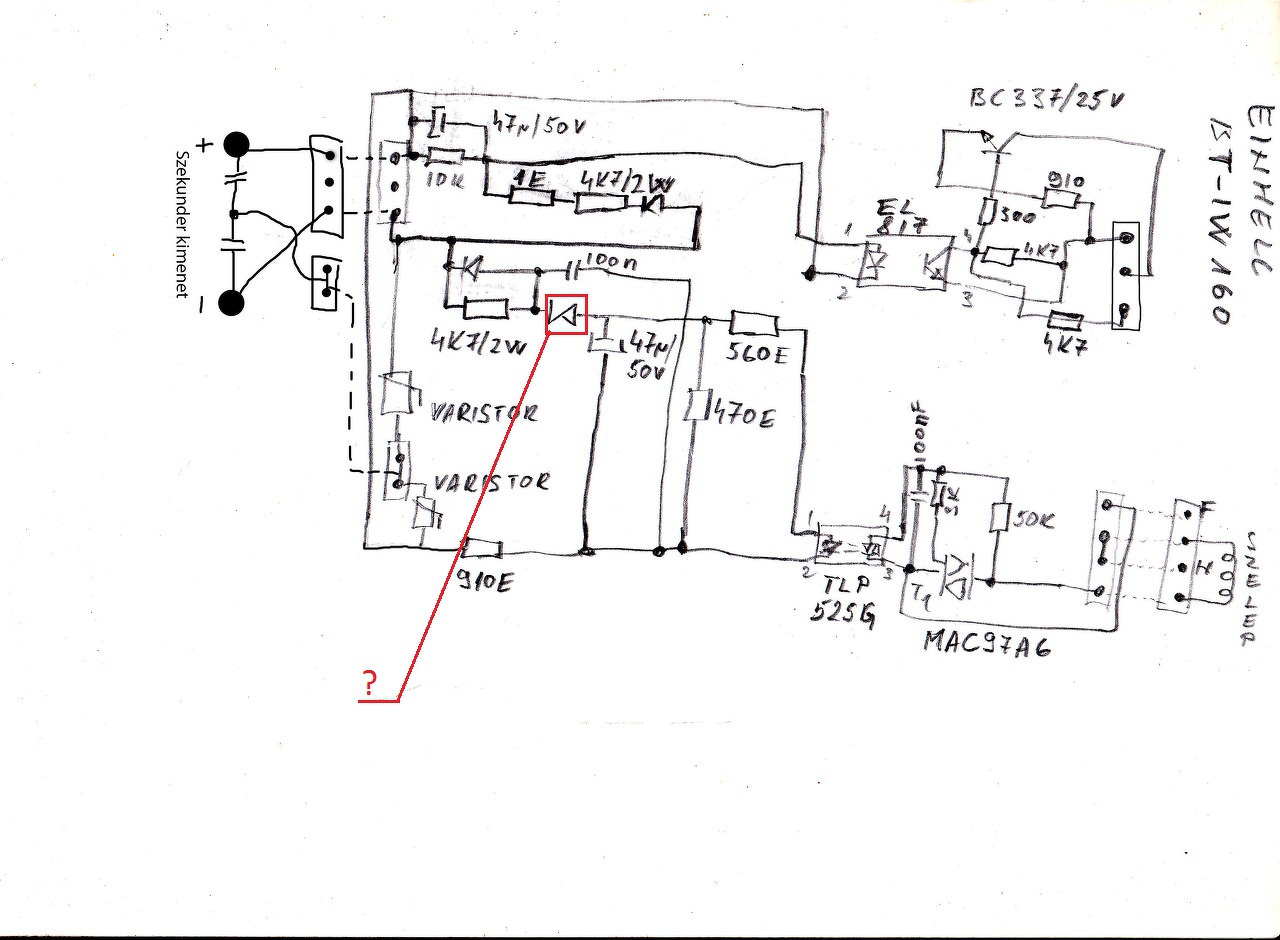 EINHELL
BT-IW 160
BC337/25V
+
Szekunder kimenet
-
47µ/50V
10K
1E
4K7/2W
100n
4K7/2W
47µ/
50V
560E
470E
VARISTOR
VARISTOR
910E
EL
817
1
2
4
3
910
300
4K7
4K7
1
2
4
3
TLP
525G
100nF
50K
T1
MAC97A6
F
H
?